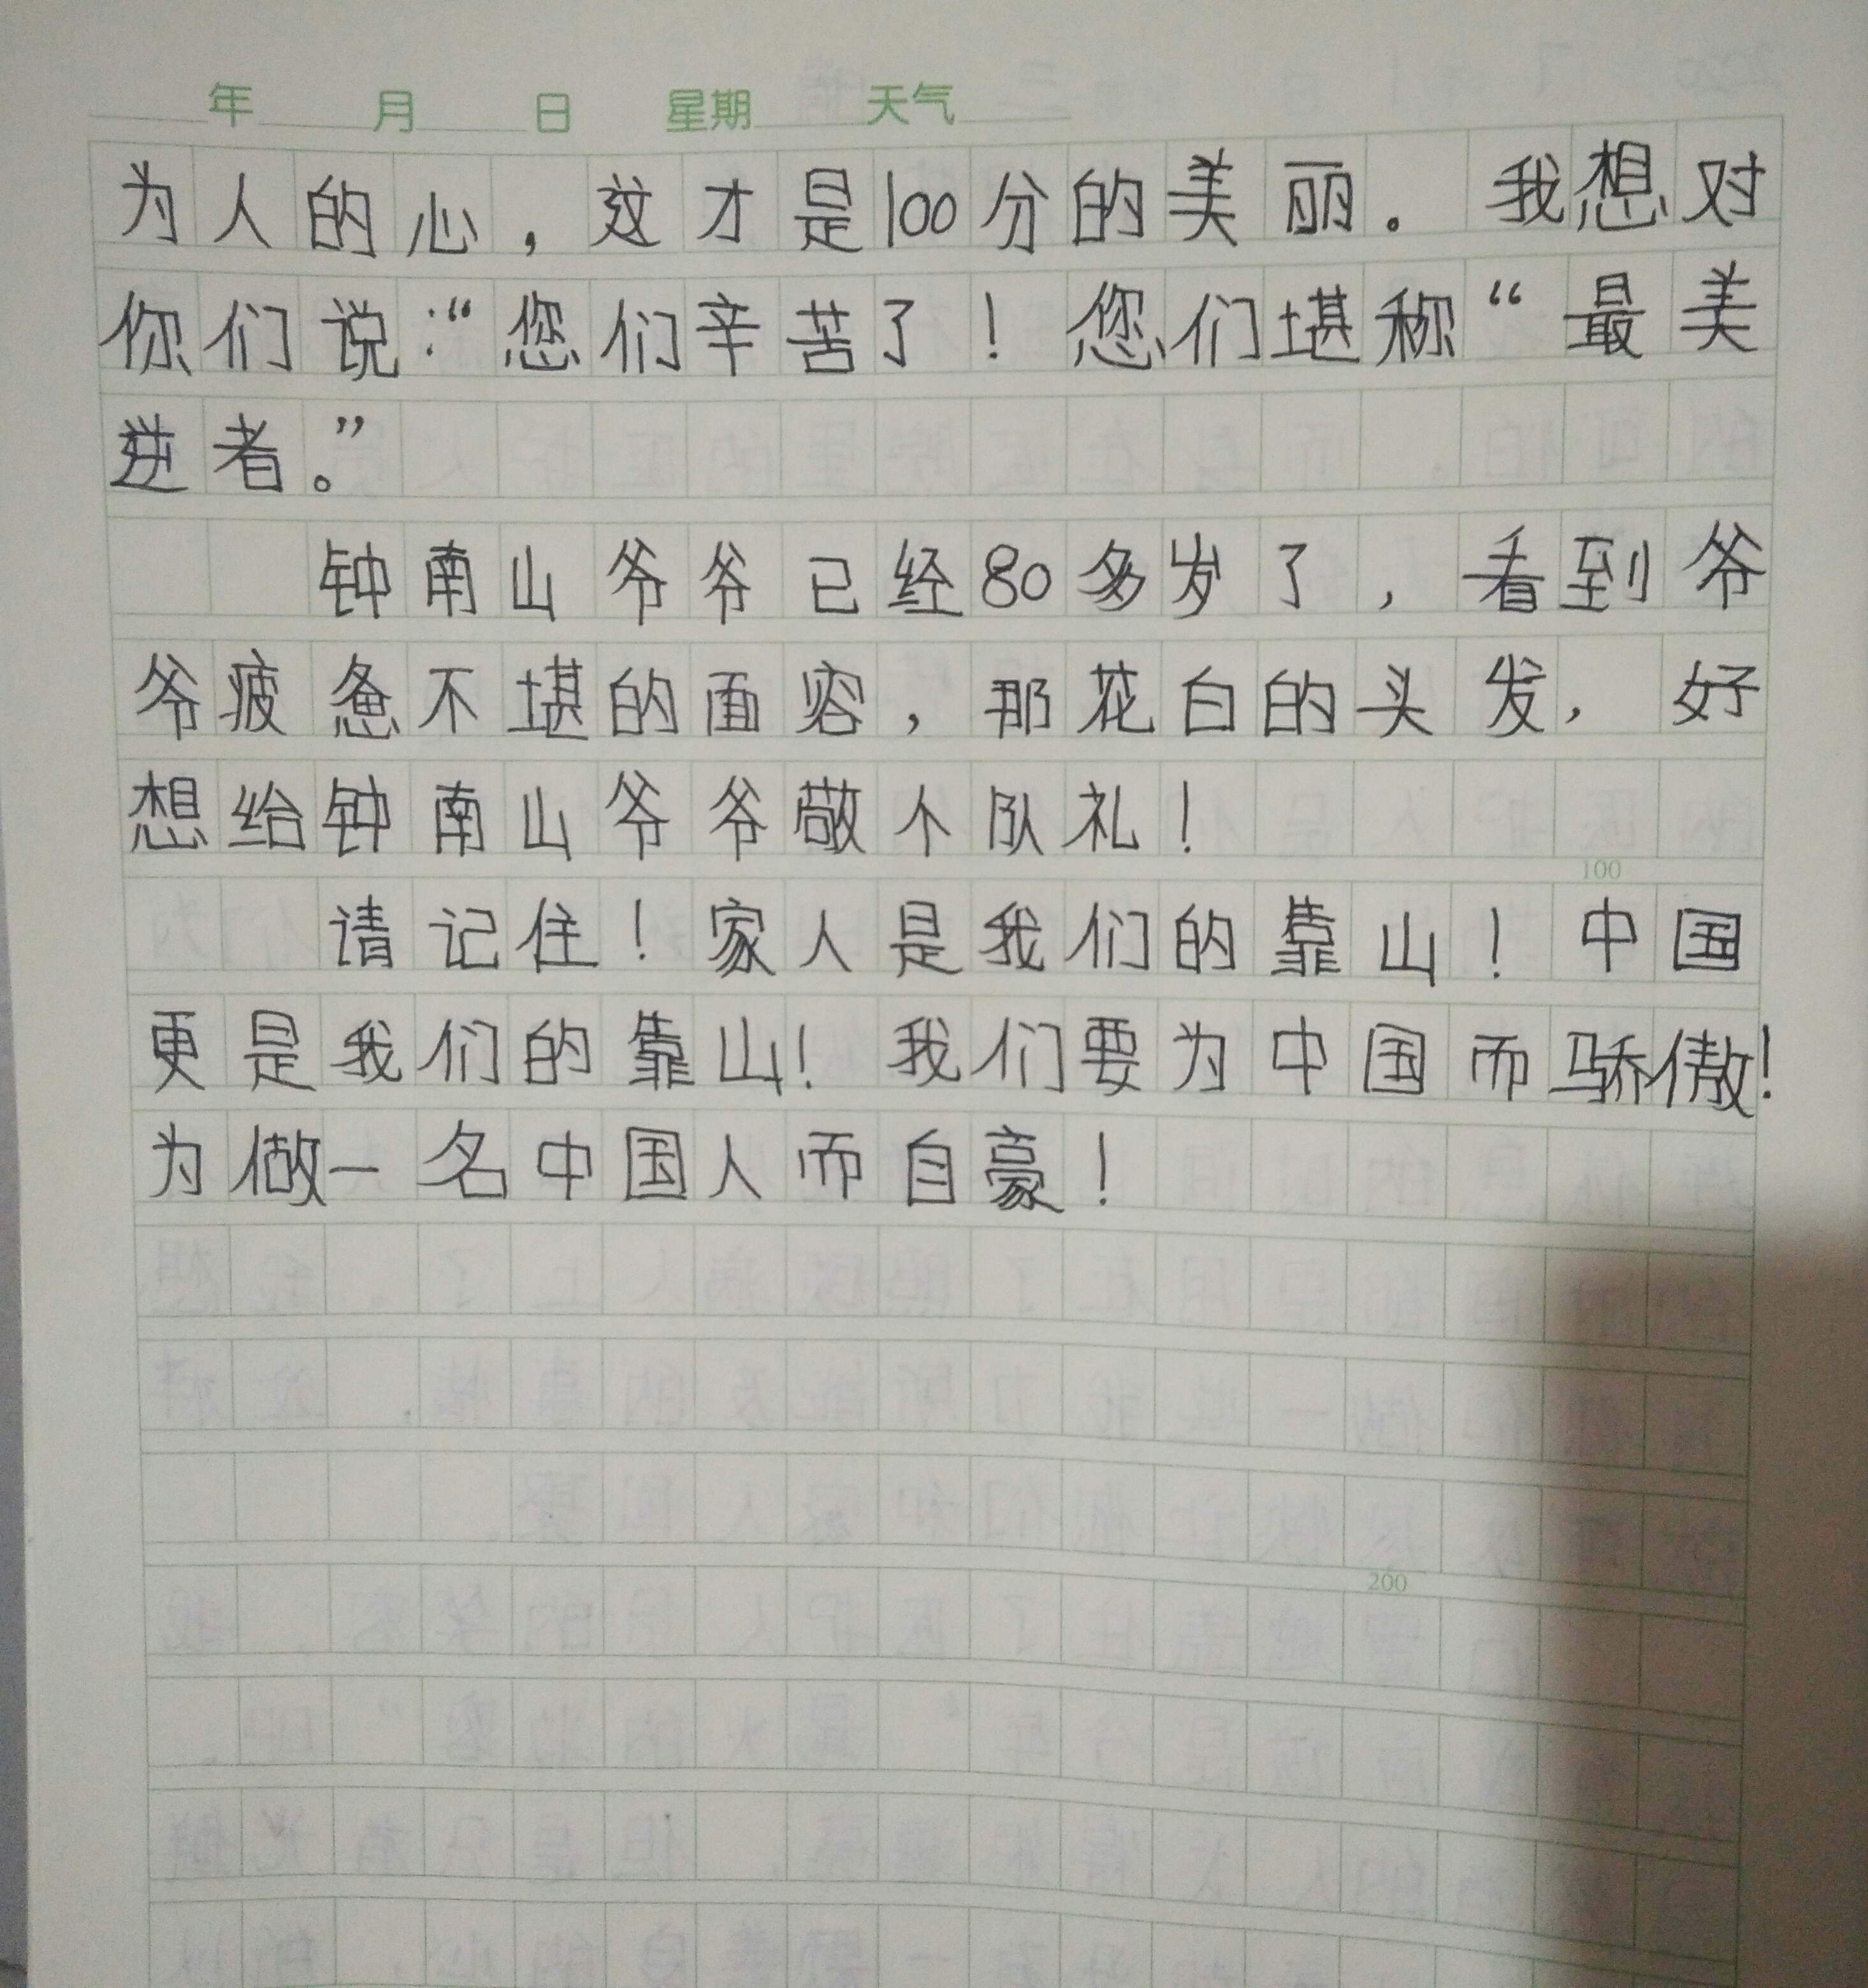 年 月 日 星期 天气
为人的心，这才是100分的美丽。我想对
你们说：“您们辛苦了！您们堪称“最美
逆者。”
钟南山爷爷已经80多岁了，看到爷
爷疲惫不堪的面容，那花白的头发，好
想给钟南山爷爷敬个队礼！
100
请记住！家人是我们的靠山！中国
更是我们的靠山！我们要为中国而骄傲！
为做一名中国人而自豪！
200